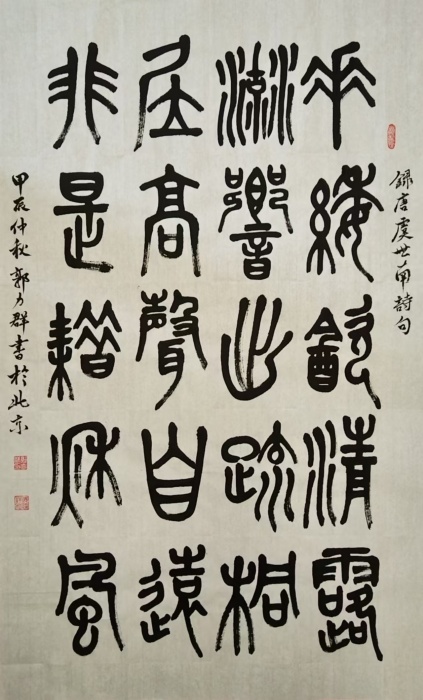 錄唐虞世南詩句
垂緌飲清露
流響出疏桐
居高聲自遠
非是藉秋風
甲辰仲秋郭力群書於北京